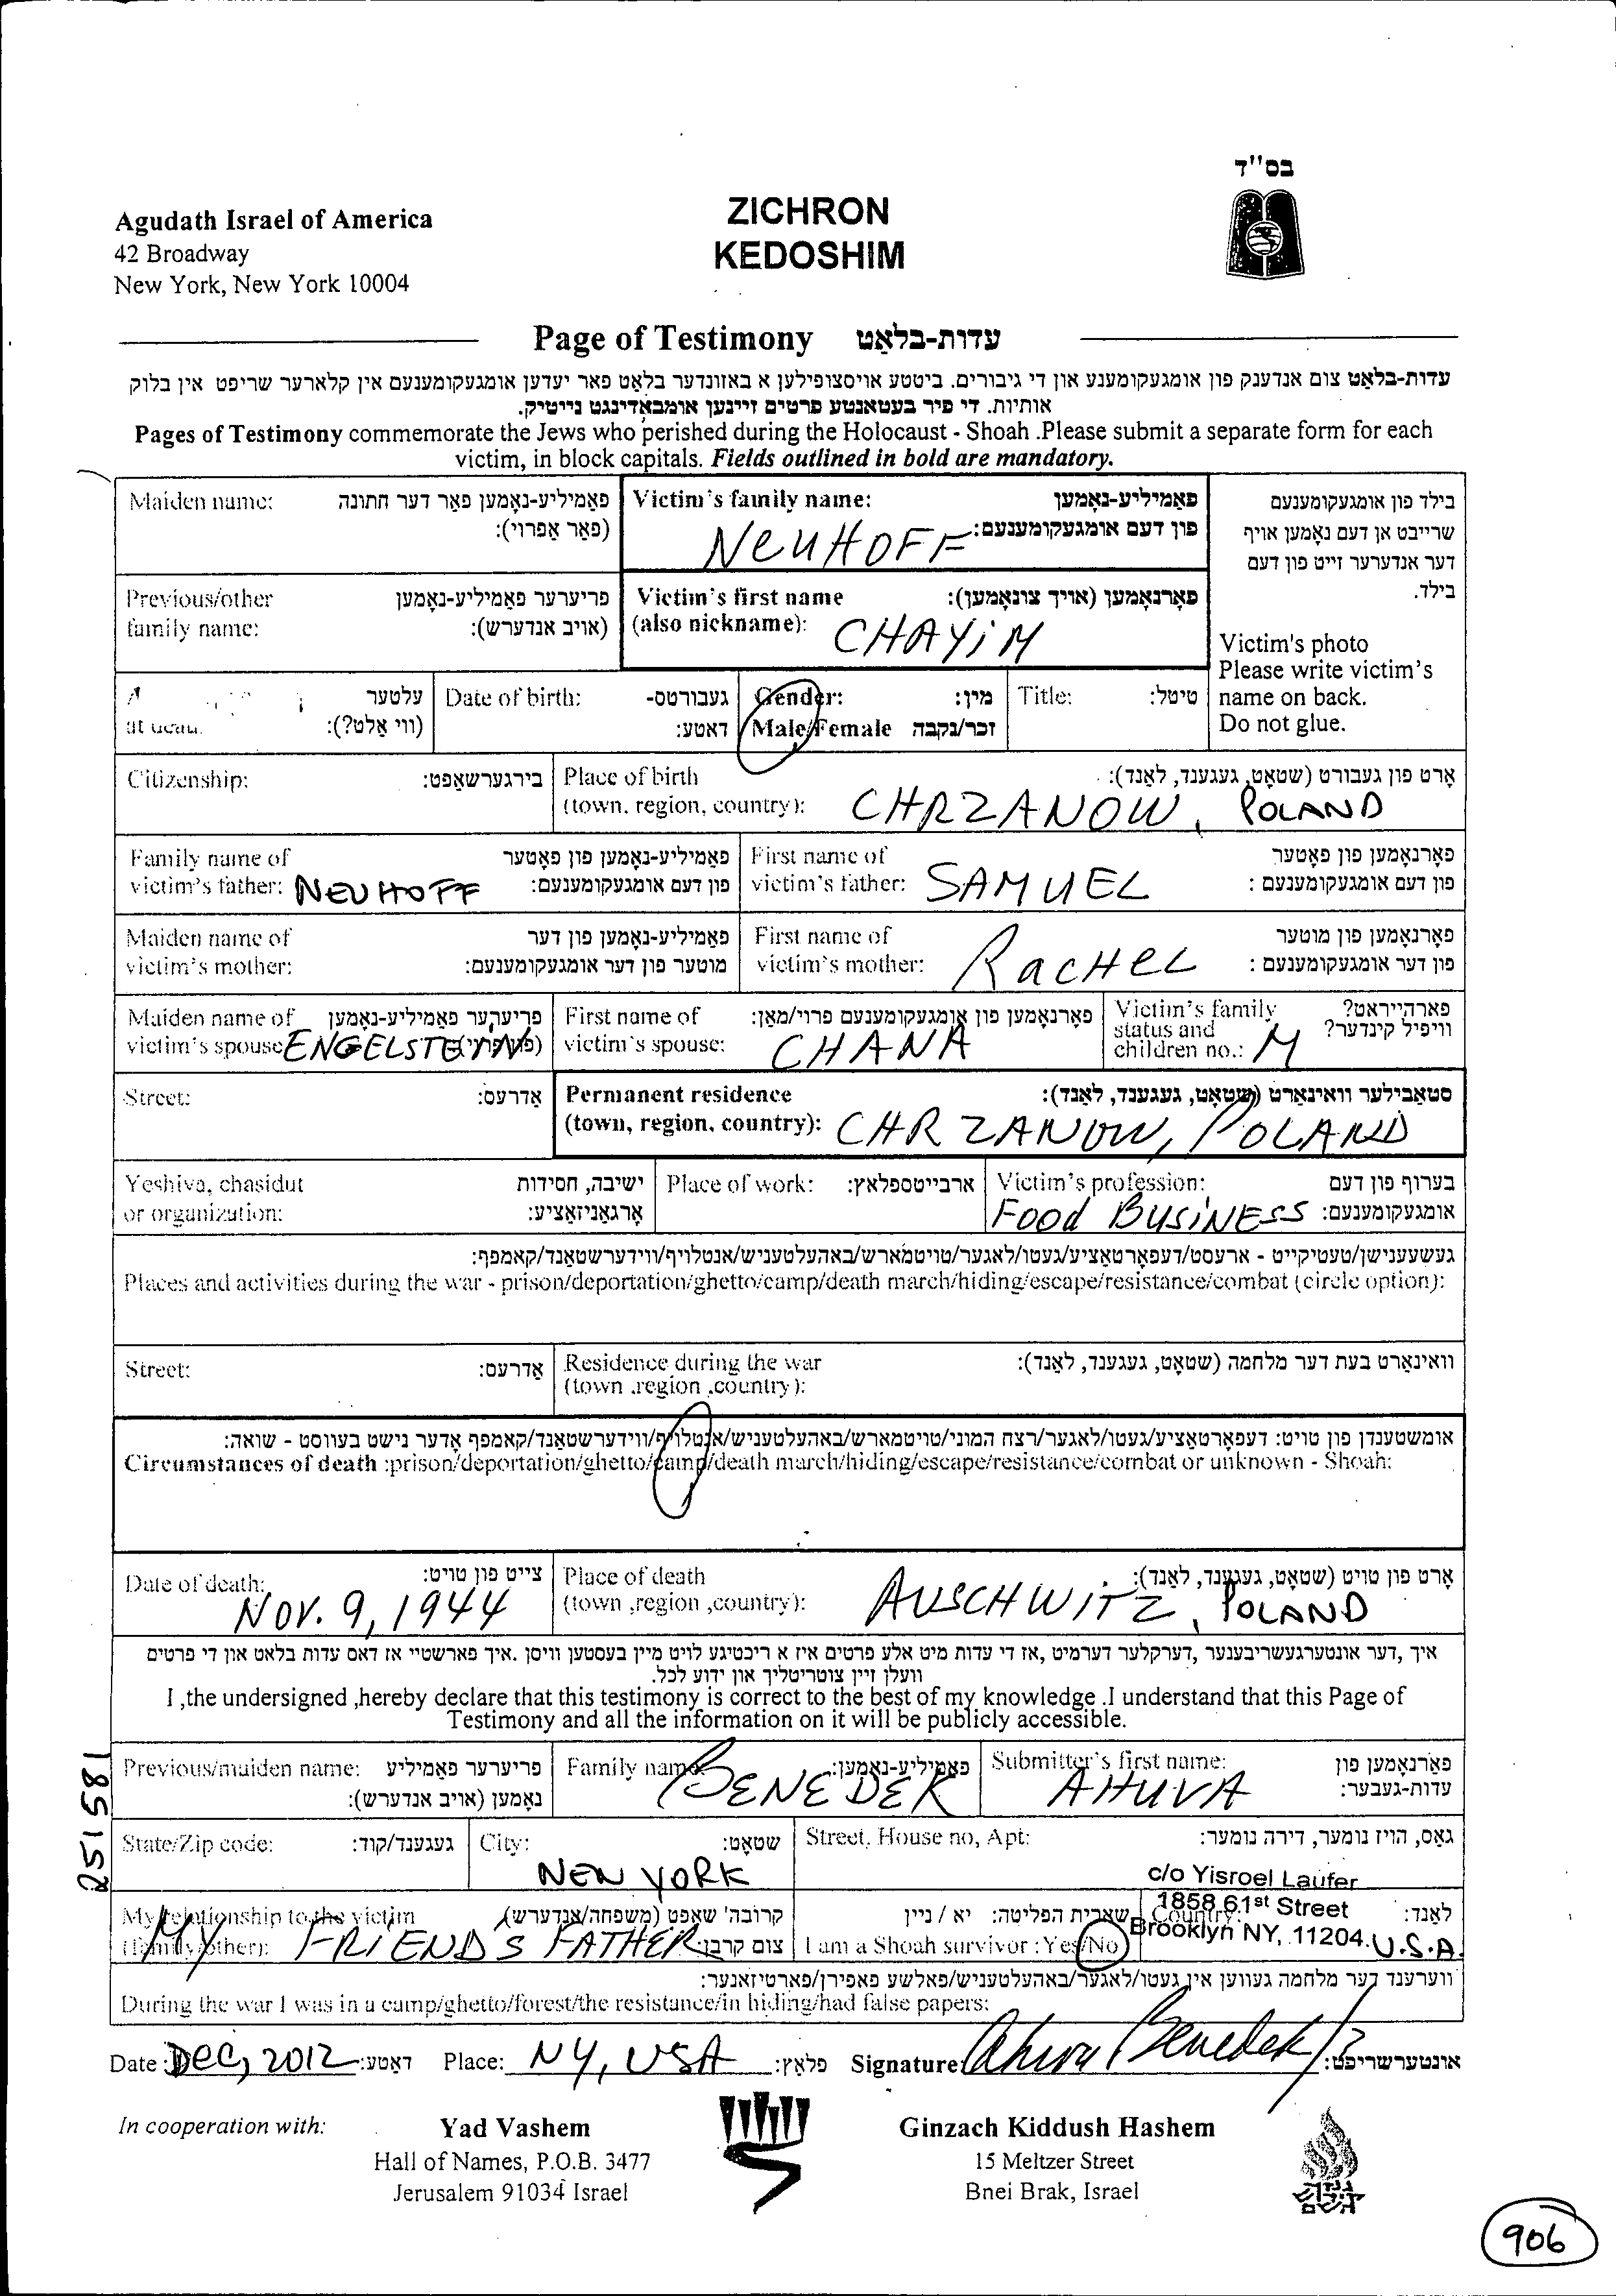 בס"ד
Agudath Israel of America
42 Broadway
New York, New York 10004
ZICHRON
KEDOSHIM
Page of Testimony עדות-בלאַט
עדות-בלאַט צום אנדענק פון אומגעקומענע און די גיבורים. ביטטע אויסצופילען א באזונדער בלאַט פאר יעדען אומגעקומענעם אין קלארער שריפט אין בלוק
אותיות. די פיר בעטאנטע פרטים זיינען אומבאַדינגט נייטיק.
Pages of Testimony commemorate the Jews who perished during the Holocaust - Shoah .Please submit a separate form for each
victim, in block capitals. Fields outlined in bold are mandatory.
Maiden name: פאַמיליע-נאָמען פאַר דער חתונה
(פאַר אַפרוי):
Victim's family name: פאַמיליע-נאָמען
פון דעם אומגעקומענעם:
NEUHOFF
בילד פון אומגעקומענעם
שרייבט אן דעם נאָמען אויף
דער אנדערער זייט פון דעם
בילד.
Victim's photo
Please write victim's
name on back.
Do not glue.
Previous/other פריערער פאַמיליע-נאָמען
family name: (אויב אנדערש):
Victim's first name פאָרנאָמען (אויך צונאָמען):
(also nickname): CHAYIM
עלטער
at (ווי אַלט?):
Date of birth: געבורטס-
דאַטע:
Gender: מין:
Male/Female זכר/נקבה
Title: טיטל:
Citizenship: בירגערשאַפט:
Place of birth אָרט פון געבורט (שטאָט, געגענד, לאַנד):
(town, region, country): CHRZANOW, POLAND
Family name of פאַמיליע-נאָמען פון פאָטער
victim's father: NEUHOFF פון דעם אומגעקומענעם:
First name of פאָרנאָמען פון פאָטער
victim's father: SAMUEL פון דעם אומגעקומענעם :
Maiden name of פאַמיליע-נאָמען פון דער
victim's mother: מוטער פון דער אומגעקומענעם:
First name of פאָרנאָמען פון מוטער
victim's mother: RACHEL פון דער אומגעקומענעם :
Maiden name of פריערער פאַמיליע-נאָמען
victim's spouse ENGELSTEIN
First name of פאָרנאָמען פון אומגעקומענעם פרוי/מאַן:
victim's spouse: CHANA
Victim's family פארהייראט?
status and וויפיל קינדער?
children no.: M
Street: אַדרעס:
Permanent residence סטאַבילער וואינאָרט (שטאָט, געגענד, לאַנד):
(town, region, country): CHRZANOW, POLAND
Yeshiva, chasidut ישיבה, חסידות
or organization: אָרגאַניזאַציע:
Place of work: ארבייטספלאץ:
Victim's profession: בערוף פון דעם
FOOD BUSINESS אומגעקומענעם:
געשעענישן/טעטיקייט - ארעסט/דעפאָרטאַציע/געטו/לאַגער/טויטמאַרש/באהעלטעניש/אנטלויף/ווידערשטאַנד/קאמפף:
Places and activities during the war - prison/deportation/ghetto/camp/death march/hiding/escape/resistance/combat (circle option):
Street: אַדרעס:
Residence during the war וואינאָרט בעת דער מלחמה (שטאָט, געגענד, לאַנד):
(town ,region ,country):
אומשטענדן פון טויט: דעפאָרטאַציע/געטו/לאַגער/רצח המוני/טויטמארש/באהעלטעניש/אַנטלויף/ווידערשטאַנד/קאמפף אָדער נישט בעווסט - שואה:
Circumstances of death :prison/deportation/ghetto/camp/death march/hiding/escape/resistance/combat or unknown - Shoah:
Date of death: צייט פון טויט:
NOV. 9, 1944
Place of death אָרט פון טויט (שטאָט, געגענד, לאַנד):
(town ,region ,country): AUSCHWITZ, POLAND
איך ,דער אונטערגעשריבענער ,דערקלער דערמיט ,אז די עדות מיט אלע פרטים איז א ריכטיגע לויט מיין בעסטען וויסן .איך פארשטיי אז דאס עדות בלאט און די פרטים
וועלן זיין צוטריטליך און ידוע לכל.
I ,the undersigned ,hereby declare that this testimony is correct to the best of my knowledge .I understand that this Page of
Testimony and all the information on it will be publicly accessible.
Previous/maiden name: פריערער פאַמיליע
נאָמען (אויב אנדערש):
Family name פאַמיליע-נאָמען:
BENEDEK
Submitter's first name: פאָרנאָמען פון
AHUVA עדות-געבער:
State/Zip code: געגענד/קוד:
City: שטאָט:
NEW YORK
Street, House no, Apt: גאַס, הויז נומער, דירה נומער:
c/o Yisroel Laufer
1858 61st Street
Brooklyn NY, 11204
My relationship to the victim קרובה' שאַפט (משפחה/אַנדערש)
(family/other): צום קרבן:
MY FRIEND'S FATHER
שארית הפליטה: יא / ניין
I am a Shoah survivor :Yes/No
Country: לאַנד:
U.S.A.
ווערענד דער מלחמה געווען אין געטו/לאַגער/באהעלטעניש/פאלשע פאפירן/פארטיזאנער:
During the war I was in a camp/ghetto/forest/the resistance/in hiding/had false papers:
Date: DEC, 2012 דאַטע: Place: NY, USA פלאַץ: Signature: Ahuva Benedek אונטערשריפט:
In cooperation with:
Yad Vashem
Hall of Names, P.O.B. 3477
Jerusalem 91034 Israel
Ginzach Kiddush Hashem
15 Meltzer Street
Bnei Brak, Israel
גנזך
קידוש
השם
251581
906